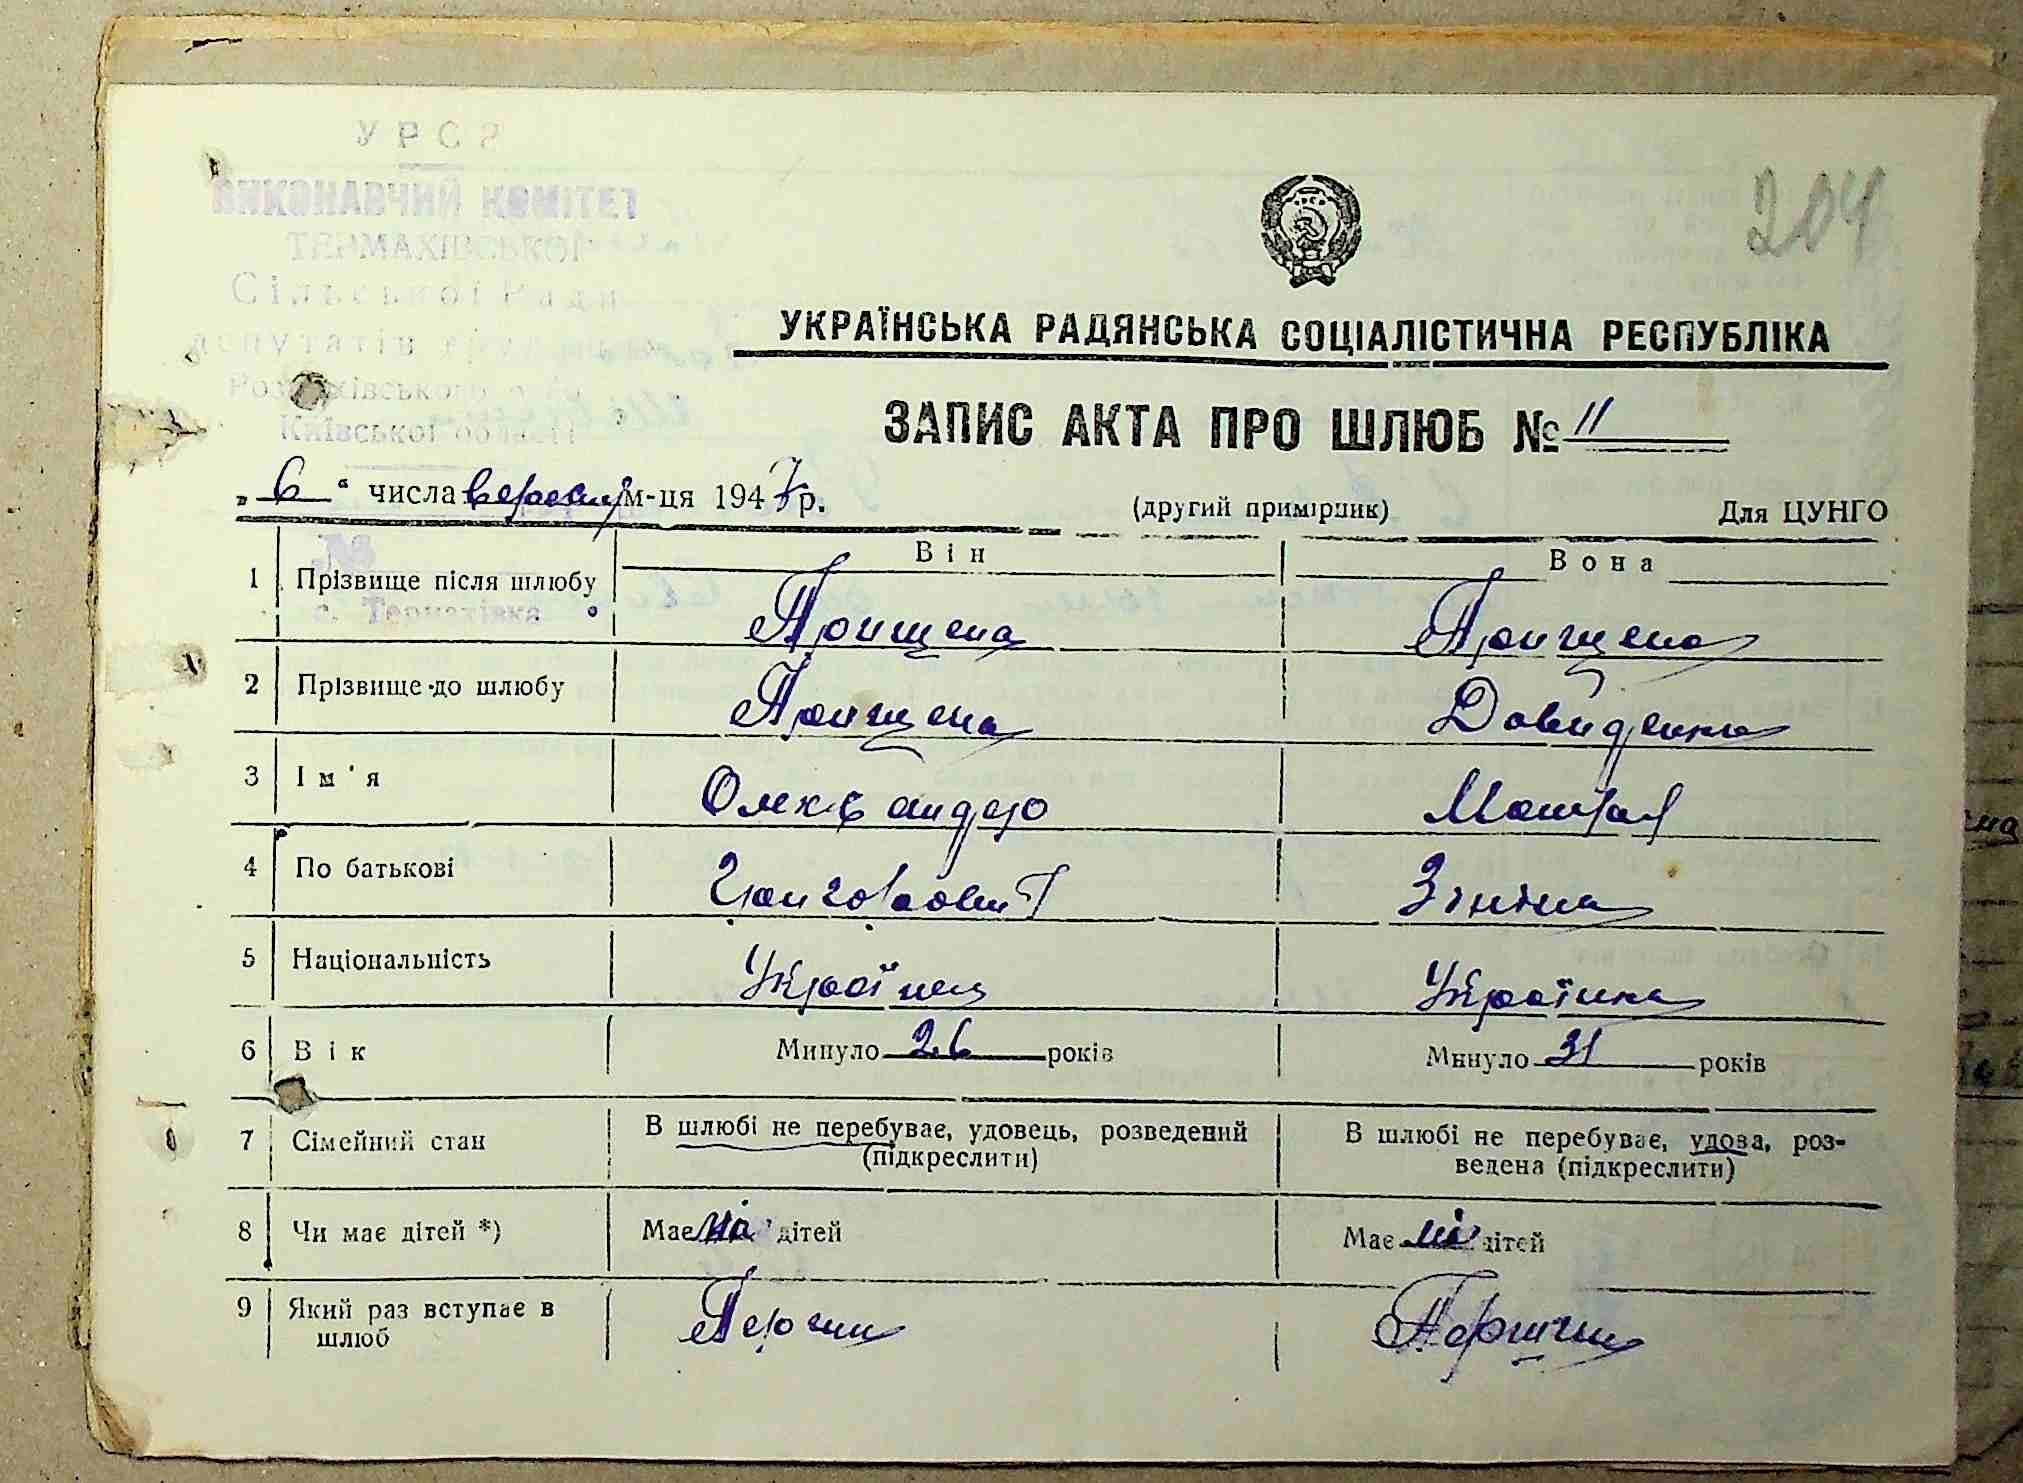 УРСР
ВИКОНАВЧИЙ КОМІТЕТ
ТЕРМАХІВСЬКОЇ
Сільської Ради
депутатів
Київської області
с. Термахівка
204
УКРАЇНСЬКА РАДЯНСЬКА СОЦІАЛІСТИЧНА РЕСПУБЛІКА
ЗАПИС АКТА ПРО ШЛЮБ № 11
„ 6 “ числа вересня м-ця 1947 р. (другий примірник) Для ЦУНГО
Він Вона
1 Прізвище після шлюбу Прищепа Прищепа
2 Прізвище до шлюбу Прищепа Давиденко
3 Ім'я Олександр Мотря
4 По батькові Григорович
5 Національність Українец Українка
6 Вік Минуло 26 років Минуло 31 років
7 Сімейний стан В шлюбі не перебуває, удовець, розведений (підкреслити) В шлюбі не перебуває, удова, розведена (підкреслити)
8 Чи має дітей *) Має дітей Має ні дітей
9 Який раз вступає в шлюб Перший Перший